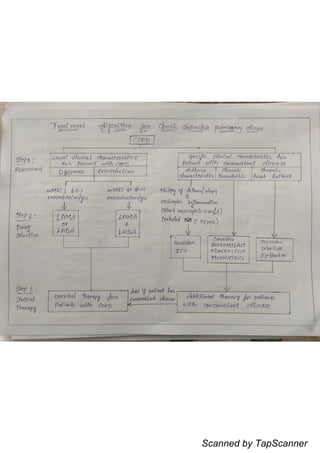 Treatment Algorithm for Chronic obstructive pulmonary disease
COPD
Step 1:
Assessment
usual clinical characteristics
for Patient with COPD
Dyspnea
Exacerbation
Specific clinical characteristics for
patient with concomitant disease
Asthma
characteristics
chronic
bronchitis
chronic
heart failure
mMRC
exacerbation/yr
mMRC
exacerbation/yr
History of Asthma/allergy
&
eosinophilic inflammation
Step 2:
Drug
Selection
LAMA
or
LABA
LAMA
+
LABA
Consider
ICS
Consider
ROFLUMILAST
MACROLIDES
MUCOLYTICS
Consider
selective
β1-blocker
Step 3:
Critical
Therapy
essential therapy for
patients with COPD
Add if patient has
concomitant disease
Additional therapy for patients
with concomitant disease
Scanned by TapScanner